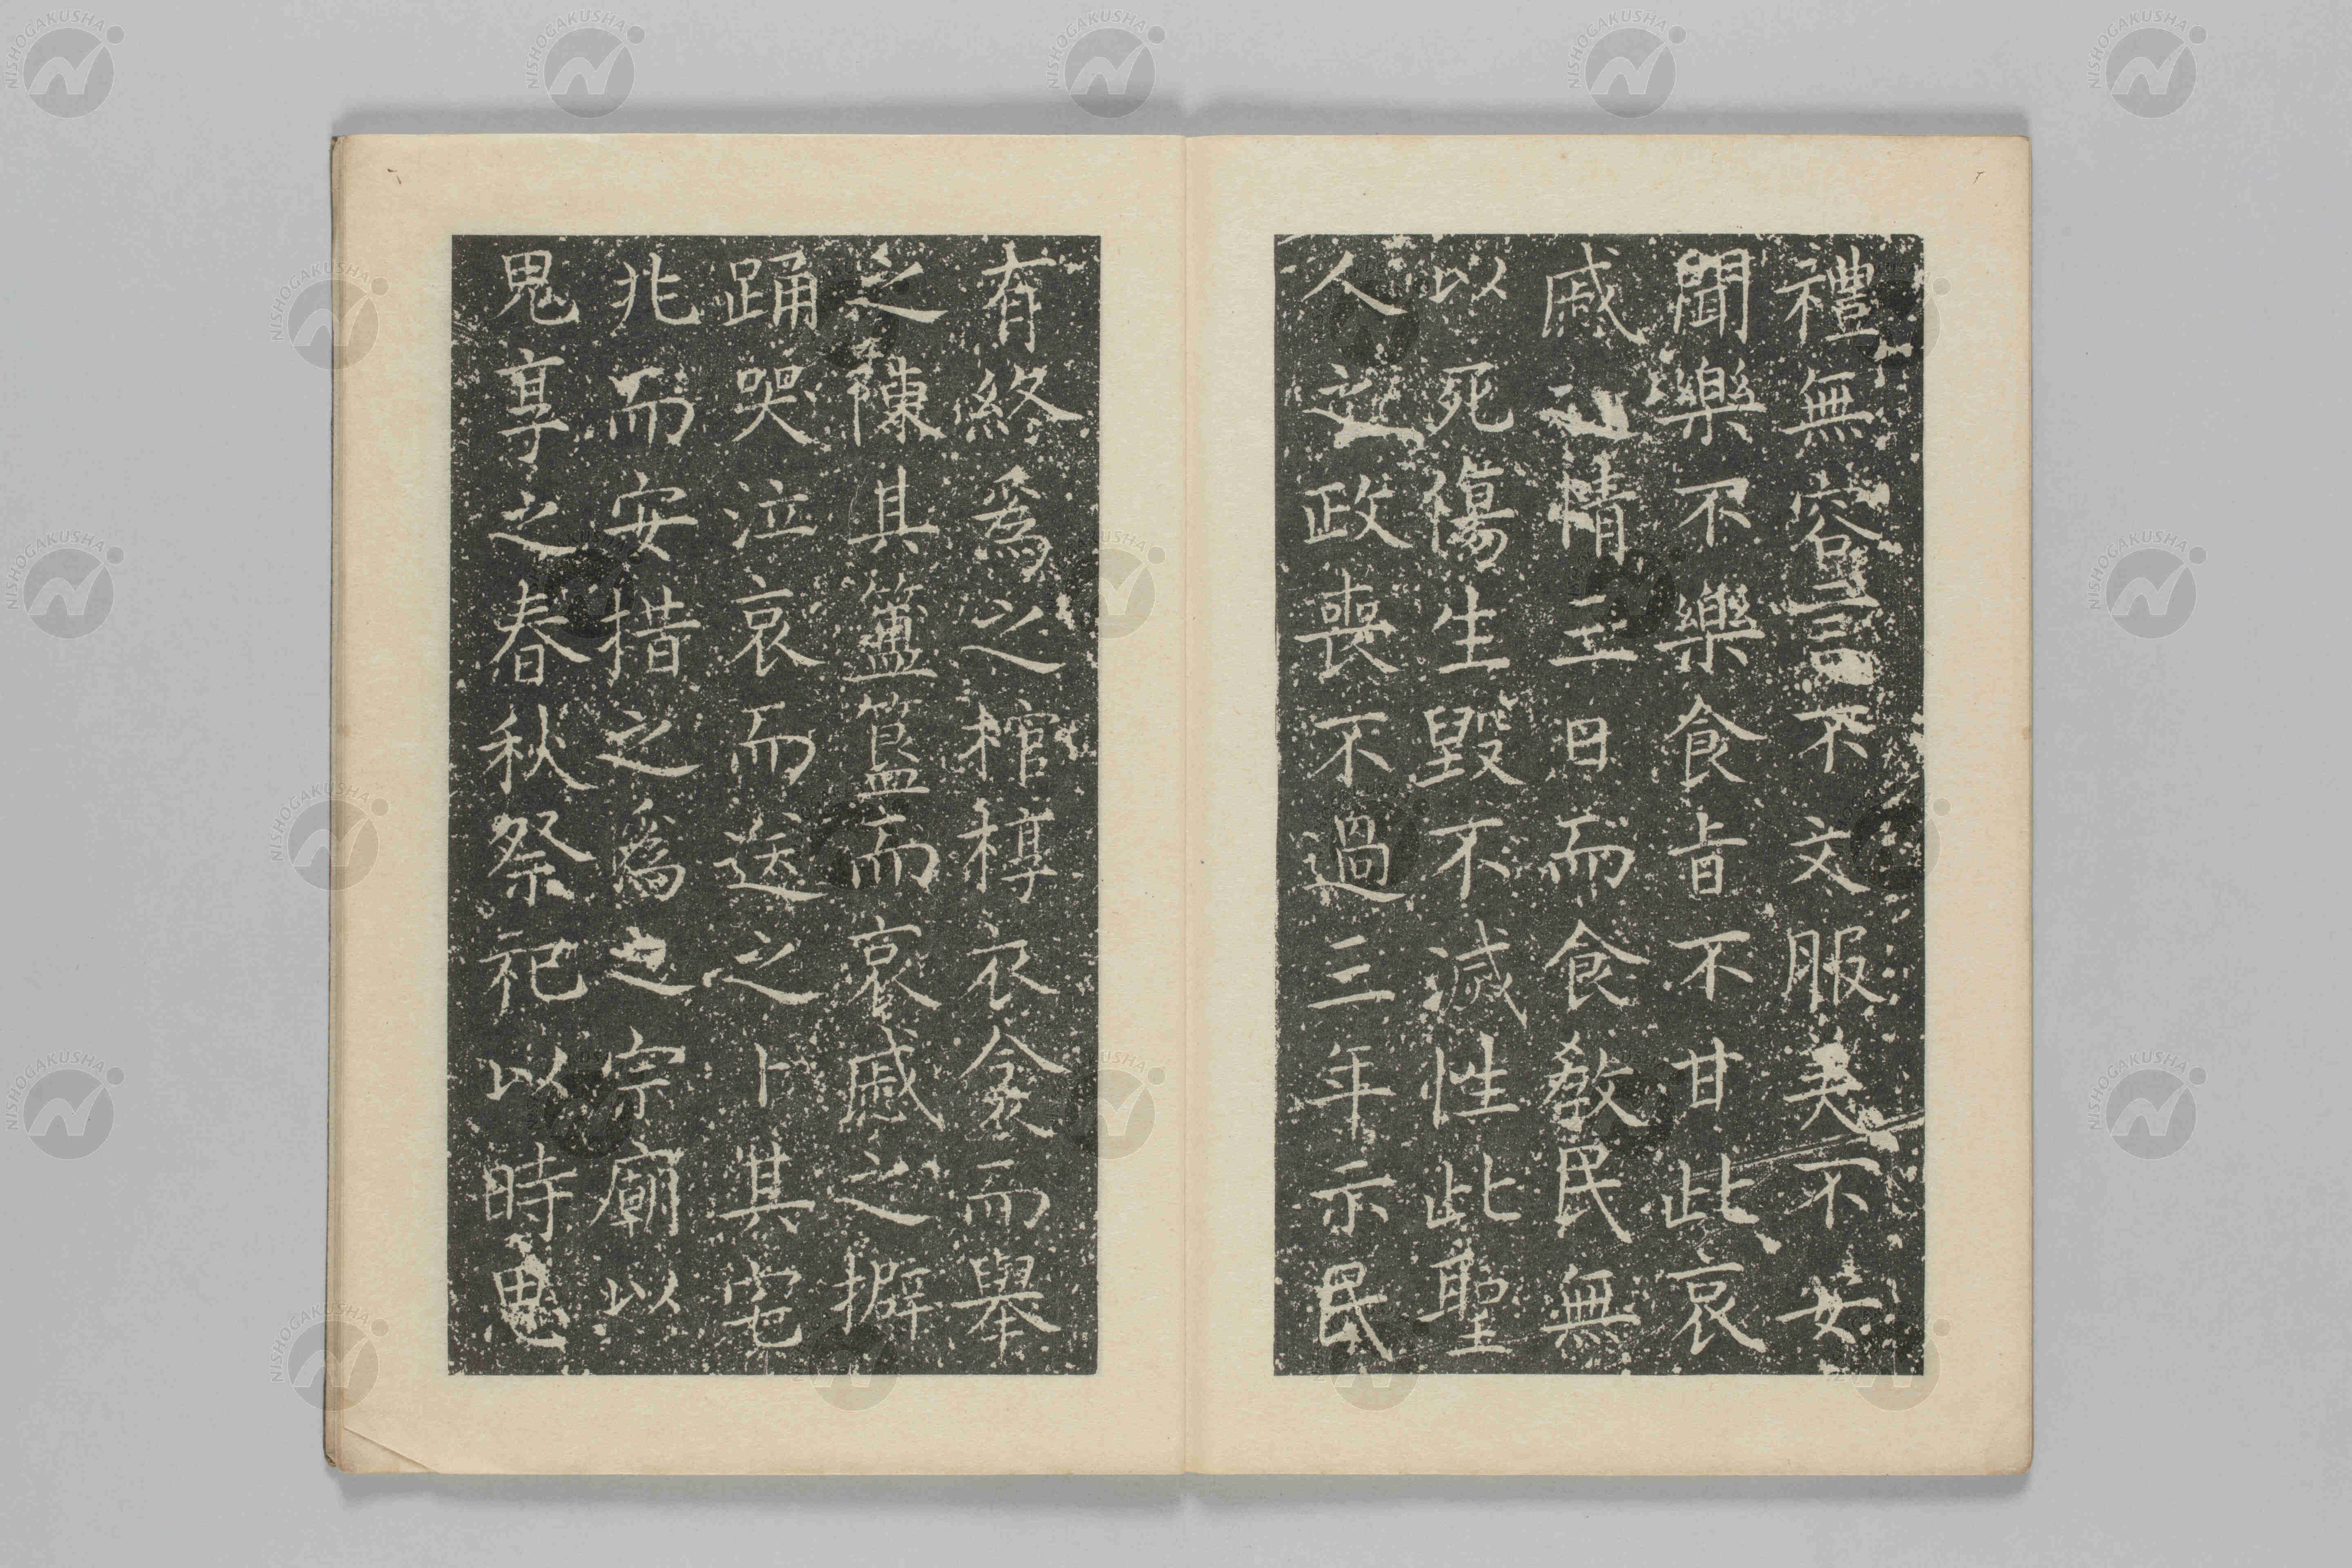 禮無容言不文服美不安
聞樂不樂食旨不甘此哀
戚之情三日而食教民無
以死傷生毀不滅性此聖
人之政喪不過三年示民
有終為之棺椁衣衾而舉
之陳其簠簋而哀慼之擗
踊哭泣哀而送之卜其宅
兆而安措之為之宗廟以
鬼享之春秋祭祀以時思
NISHOGAKUSHA